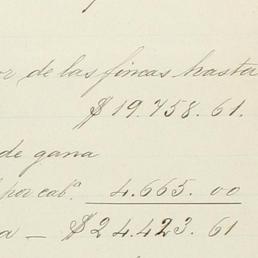 or de las fincas hasta
$19.758.61.
de gana
por cabª. 4.665.00
a — $24.423.61